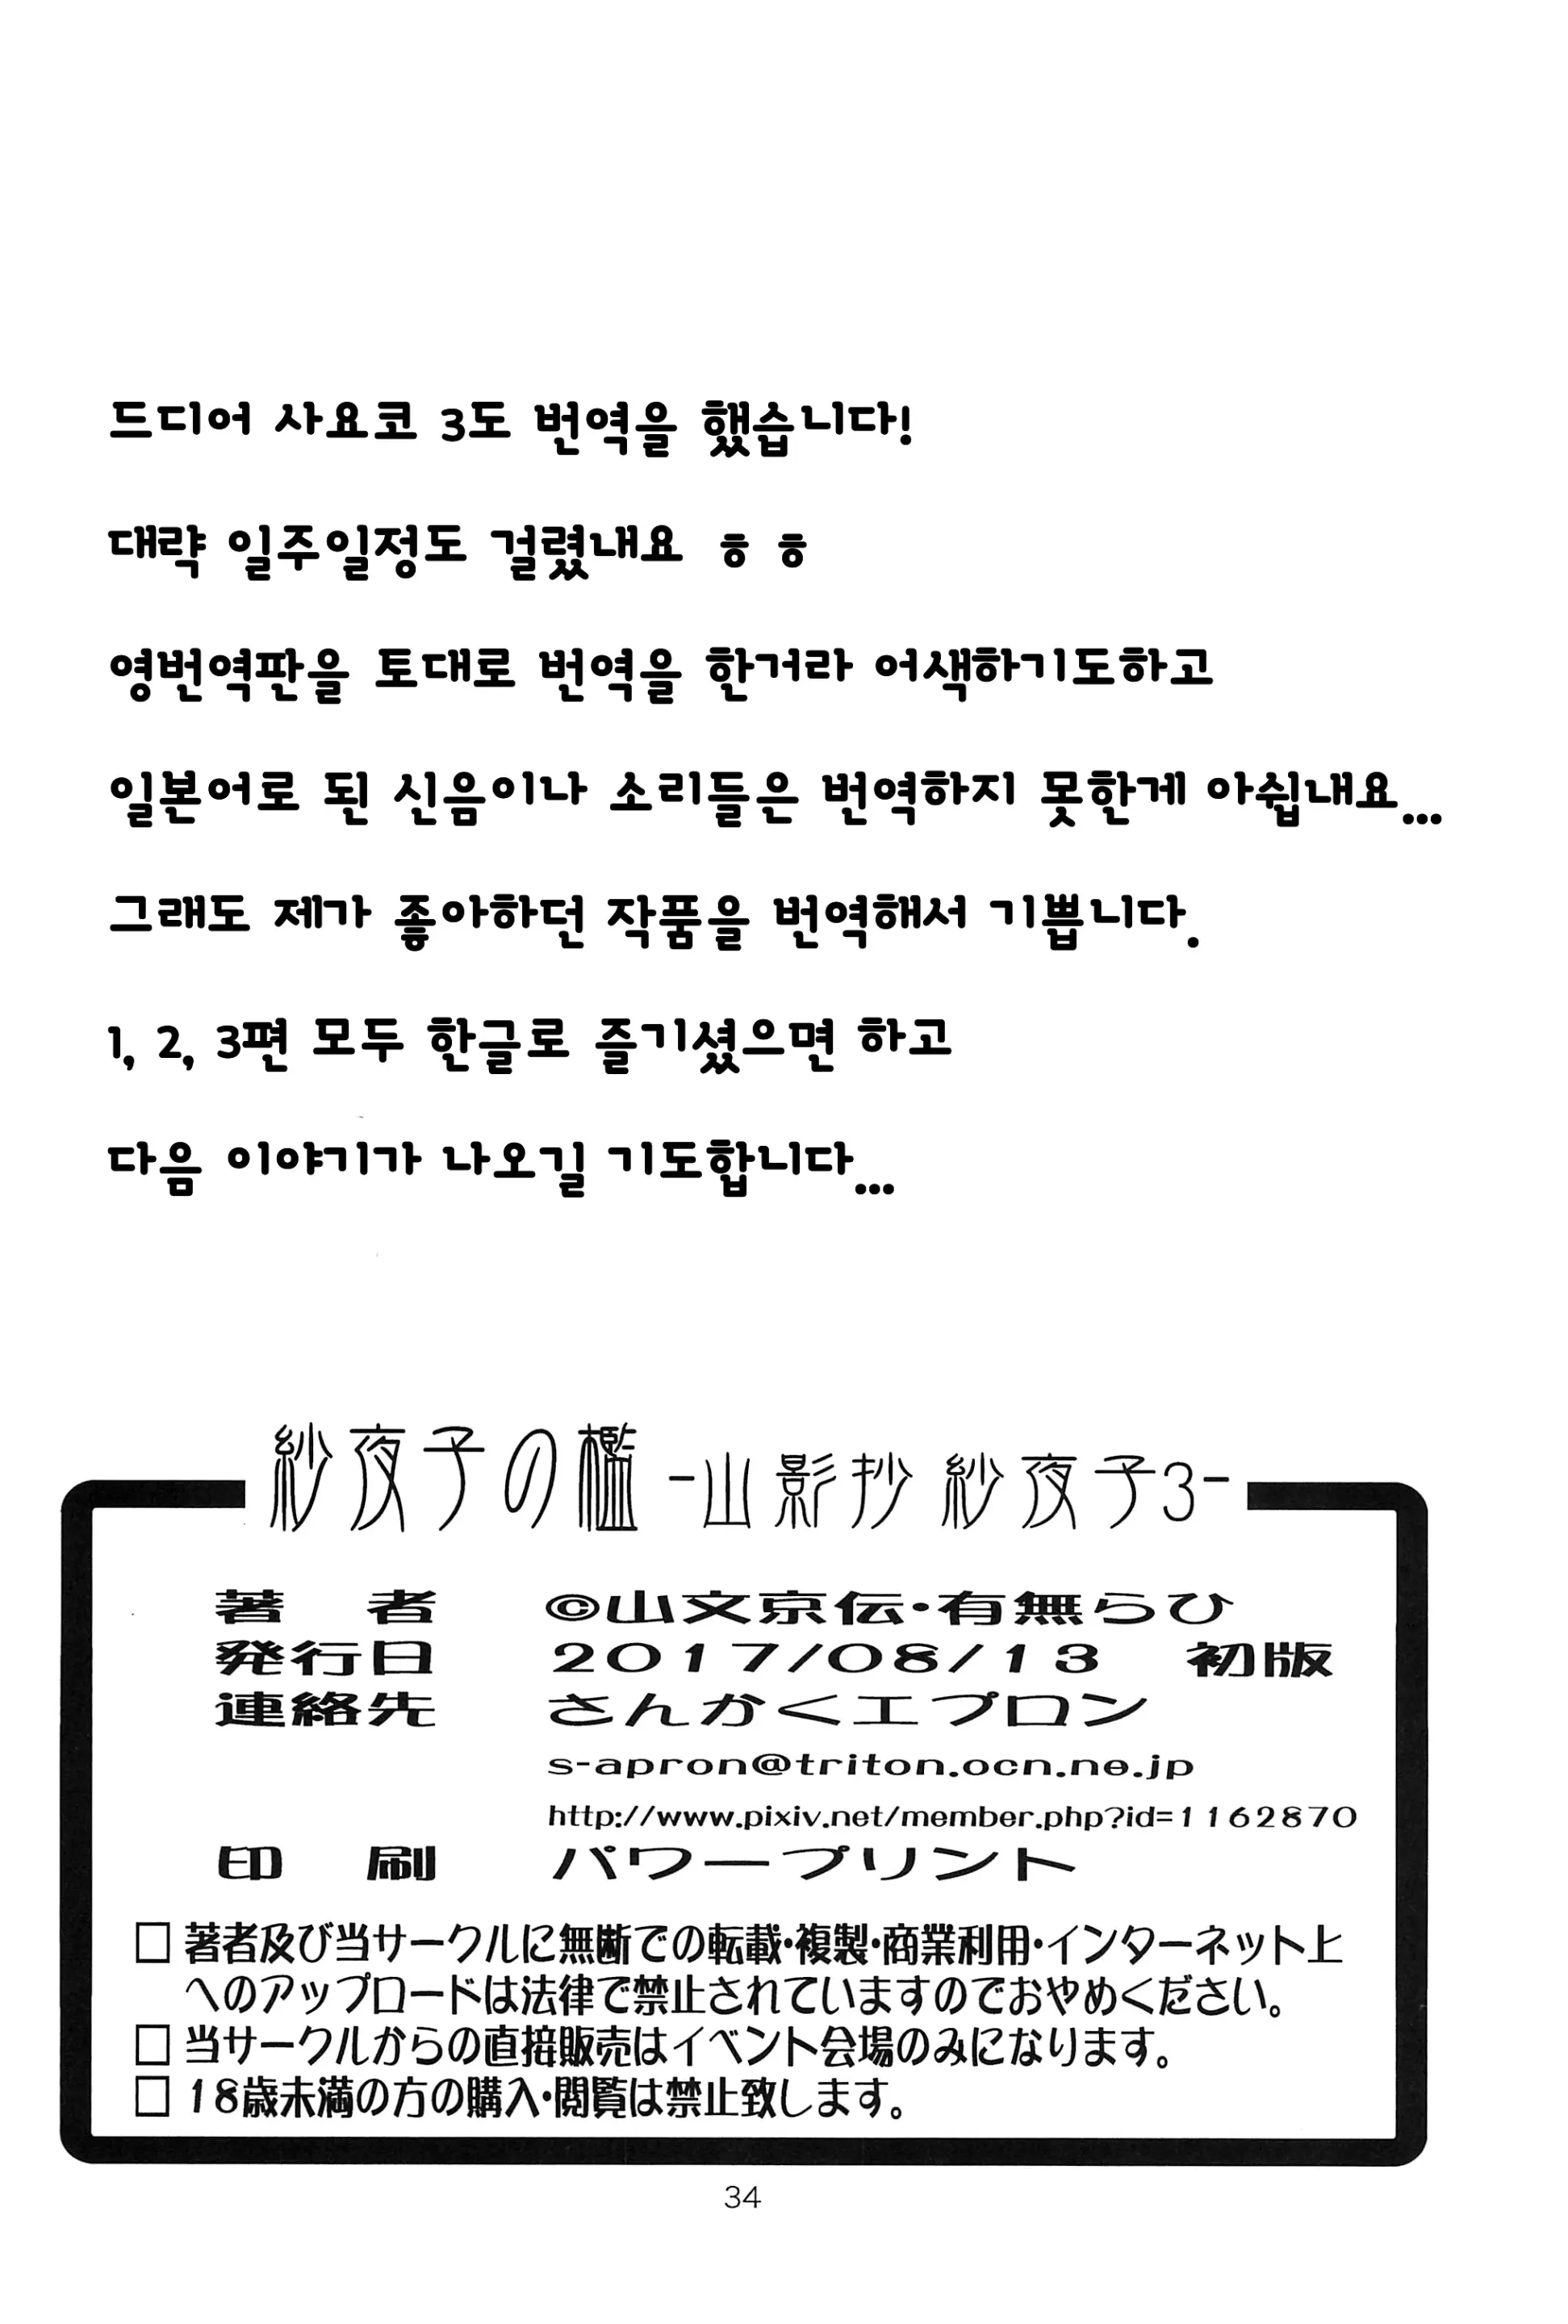 드디어 사요코 3도 번역을 했습니다!
대략 일주일정도 걸렸내요 ㅎ ㅎ
영번역판을 토대로 번역을 한거라 어색하기도하고
일본어로 된 신음이나 소리들은 번역하지 못한게 아쉽내요...
그래도 제가 좋아하던 작품을 번역해서 기쁩니다.
1, 2, 3편 모두 한글로 즐기셨으면 하고
다음 이야기가 나오길 기도합니다...
紗夜子の檻 -山影抄 紗夜子3-
著 者 ©山文京伝・有無らひ
発行日 2017/08/13 初版
連絡先 さんかくエプロン
s-apron@triton.ocn.ne.jp
http://www.pixiv.net/member.php?id=1162870
印 刷 パワープリント
□ 著者及び当サークルに無断での転載・複製・商業利用・インターネット上
へのアップロードは法律で禁止されていますのでおやめください。
□ 当サークルからの直接販売はイベント会場のみになります。
□ 18歳未満の方の購入・閲覧は禁止致します。
34